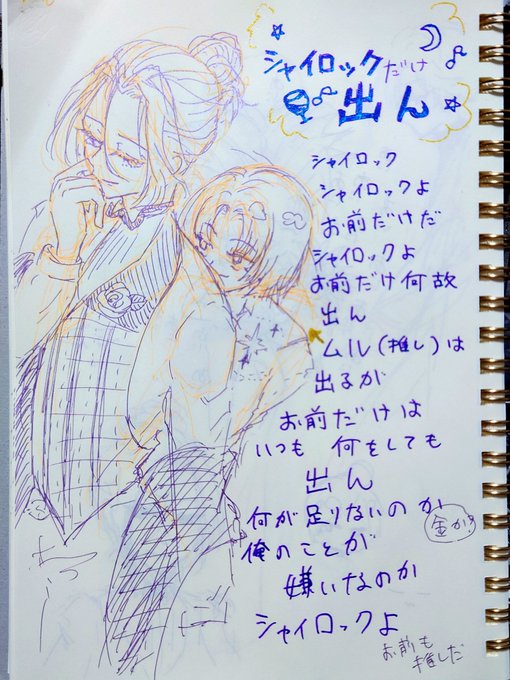 シャイロックだけ
出ん
シャイロック
シャイロックよ
お前だけだ
シャイロックよ
お前だけ何故
出ん
ムル(推し)は
出るが
お前だけは
いつも 何をしても
出ん
何が足りないのか
金か?
俺のことが
嫌いなのか
シャイロックよ
お前も
推しだ